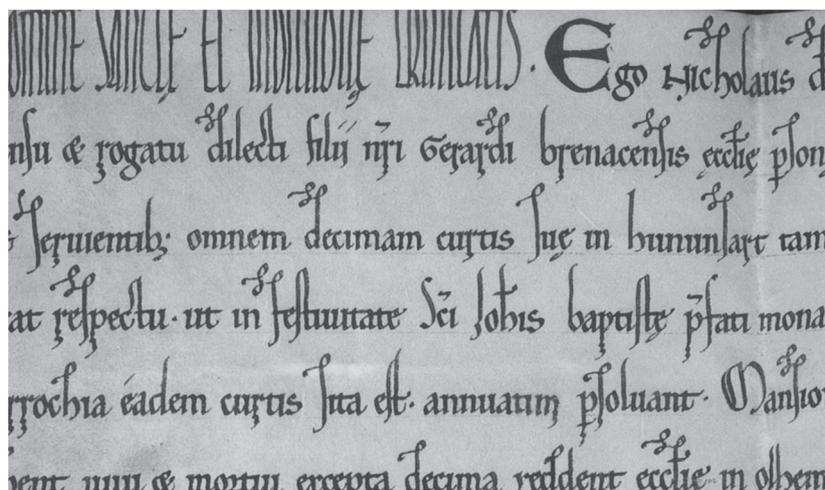 omine sancte et individuę trinitatis. Ego Nicholaus d
nsu & rogatu dilecti filij nr̄i Gerardi brenacensis ęccl̄ię p̱son
seruientib; omnem decimam curtis suę in hununsart tam
at respectu. ut in festiuitate Sc̄i Joh̄is baptistę p̄fati mona
rrochia eadem curtis sita est. annuatim p̱soluant. Mansio
uent uiui & mortui excepta decima reddent eccl̄ię in olhem